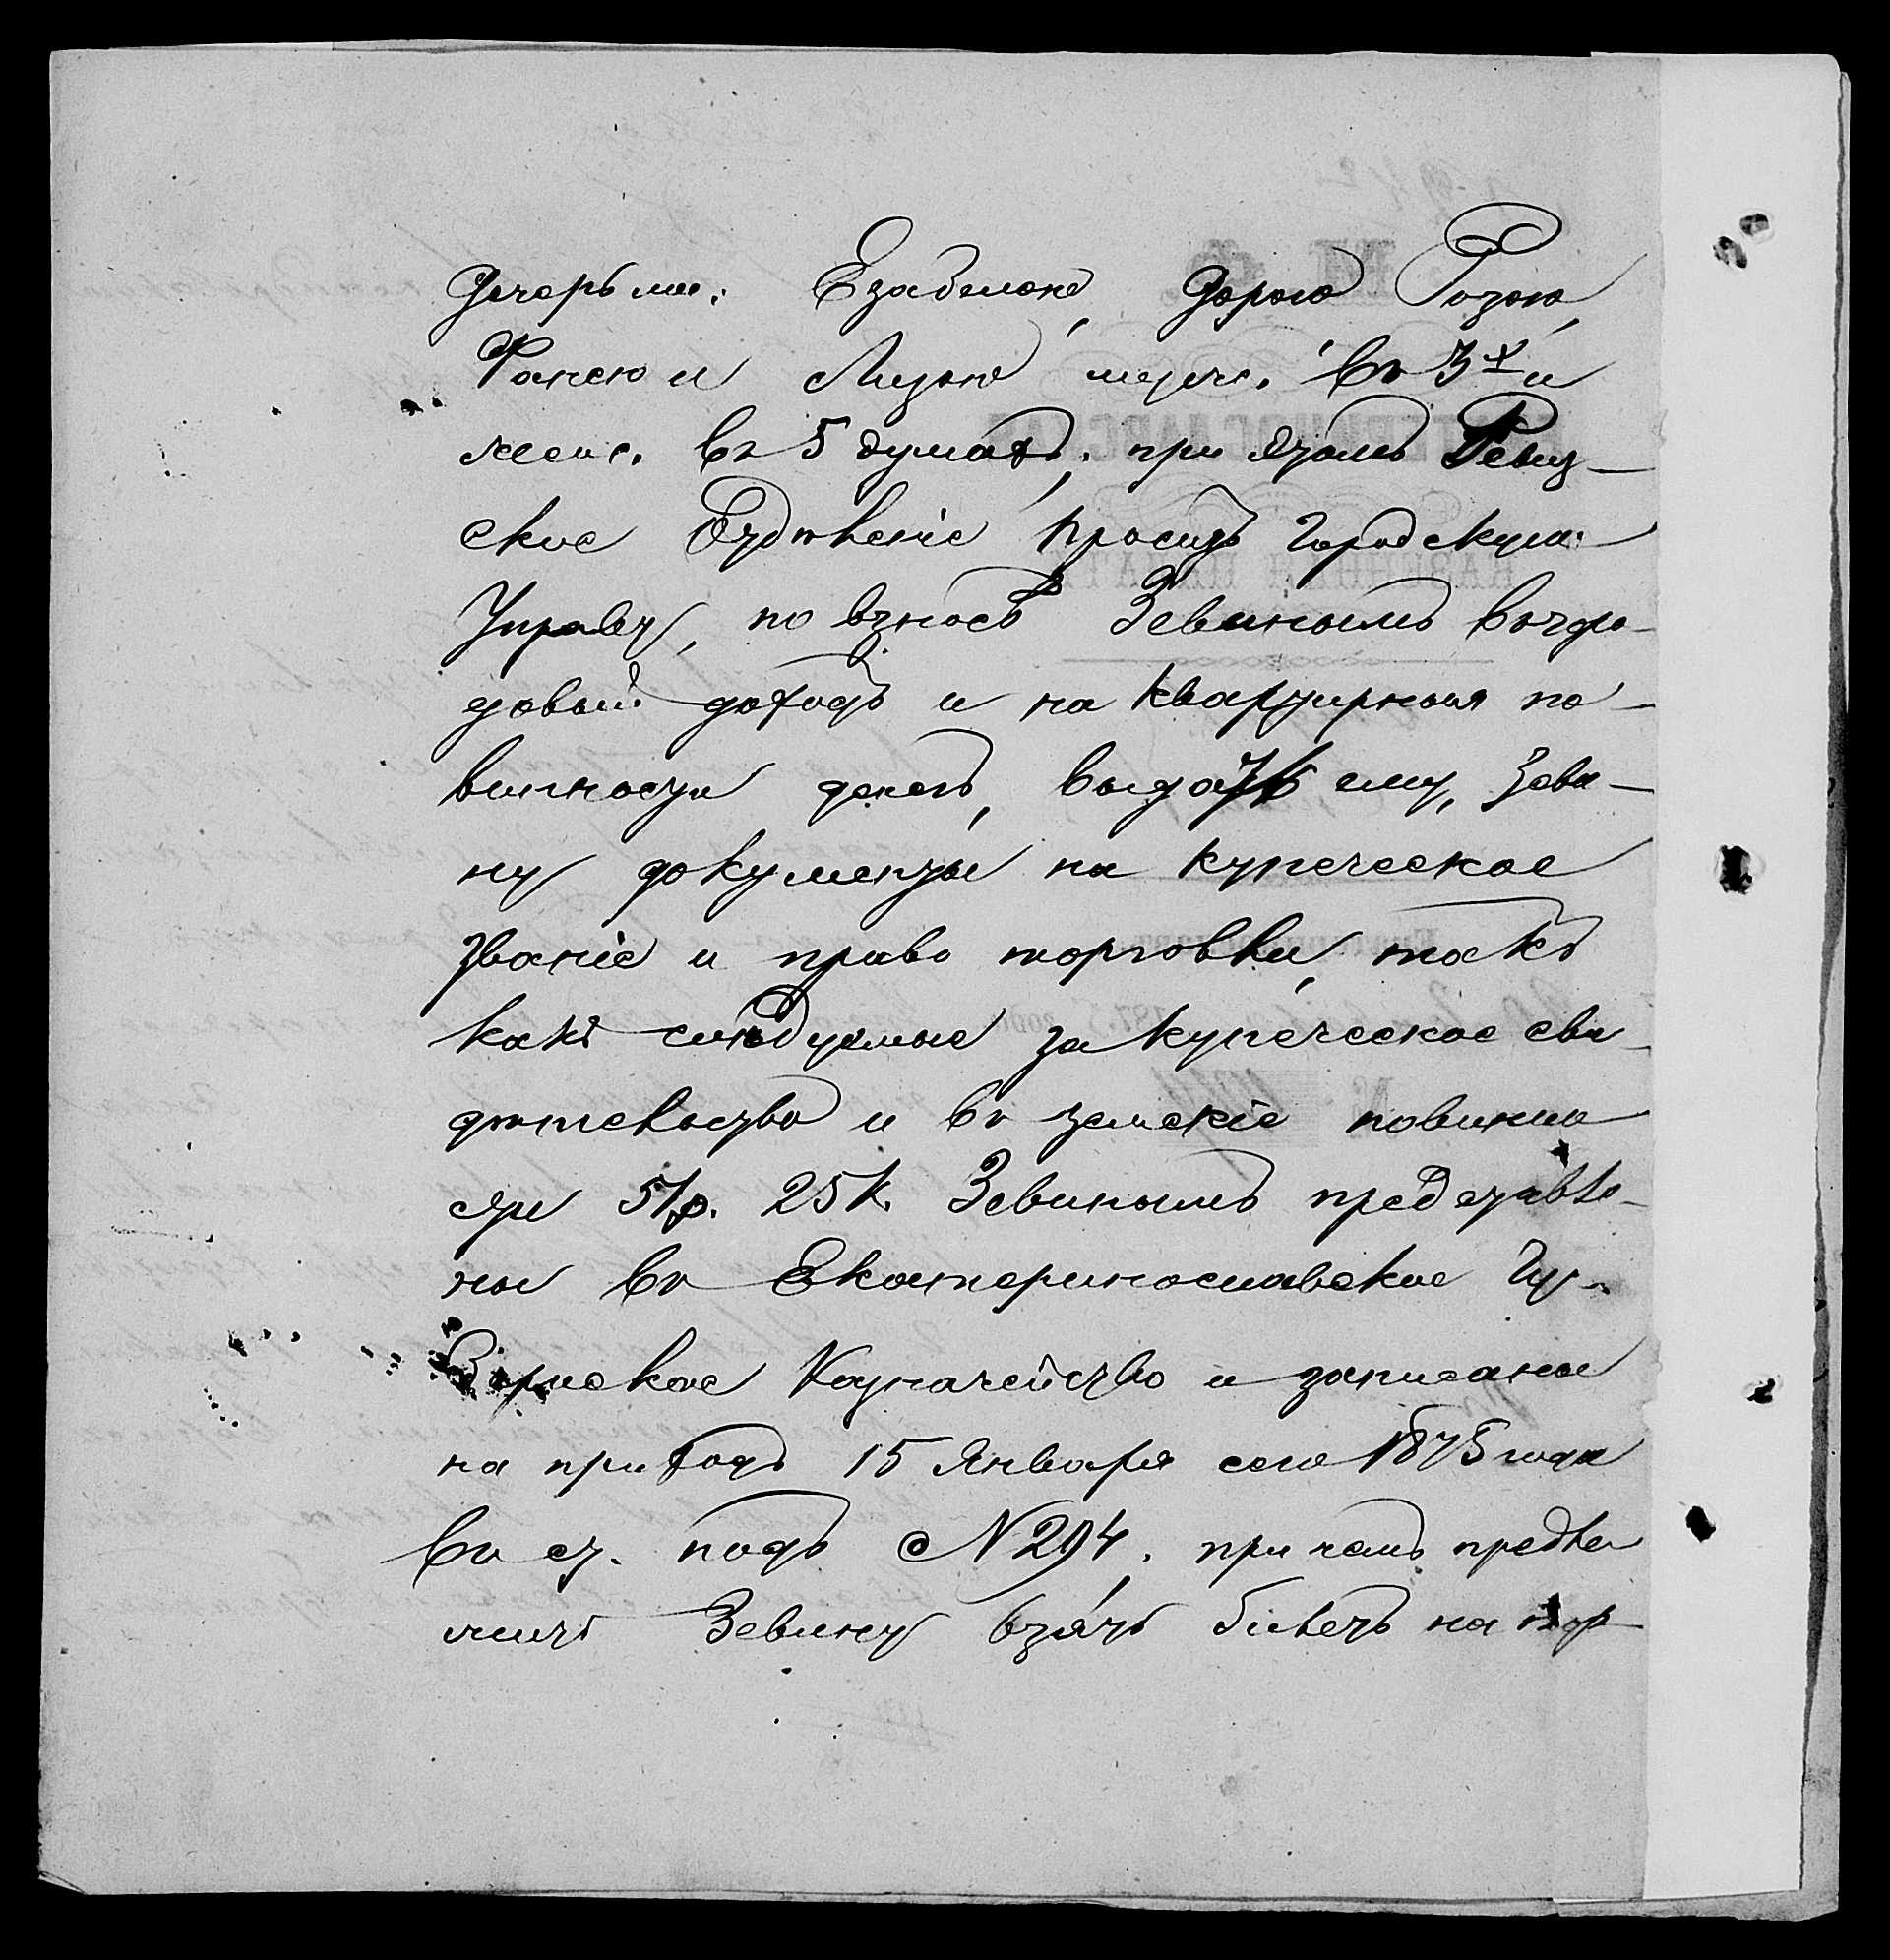 дочерьми: Езабелою, Дорою Розою,
Фанею и Лизою муж. въ 3х и
женс. въ 5 душахъ; при этомъ Ревиз-
ское Отдѣленіе проситъ Городскую
Управу, по взносѣ Зевинымъ въ горо-
довый доходъ и на квартирныя по-
винности денегъ, выдать ему, Зеви-
ну документы на купеческое
званіе и право торговли, такъ
какъ слѣдуемые за купеческое сви-
дѣтельство и въ земскіе повинно
сти 51р. 25к. Зевинымъ представле-
ны въ Екатеринославское Гу-
бернское Казначейство и записаны
на приходъ 15 Января сего 1875 года
въ ст. подъ № 294, при чемъ предва
рить Зевину взять билетъ на тор